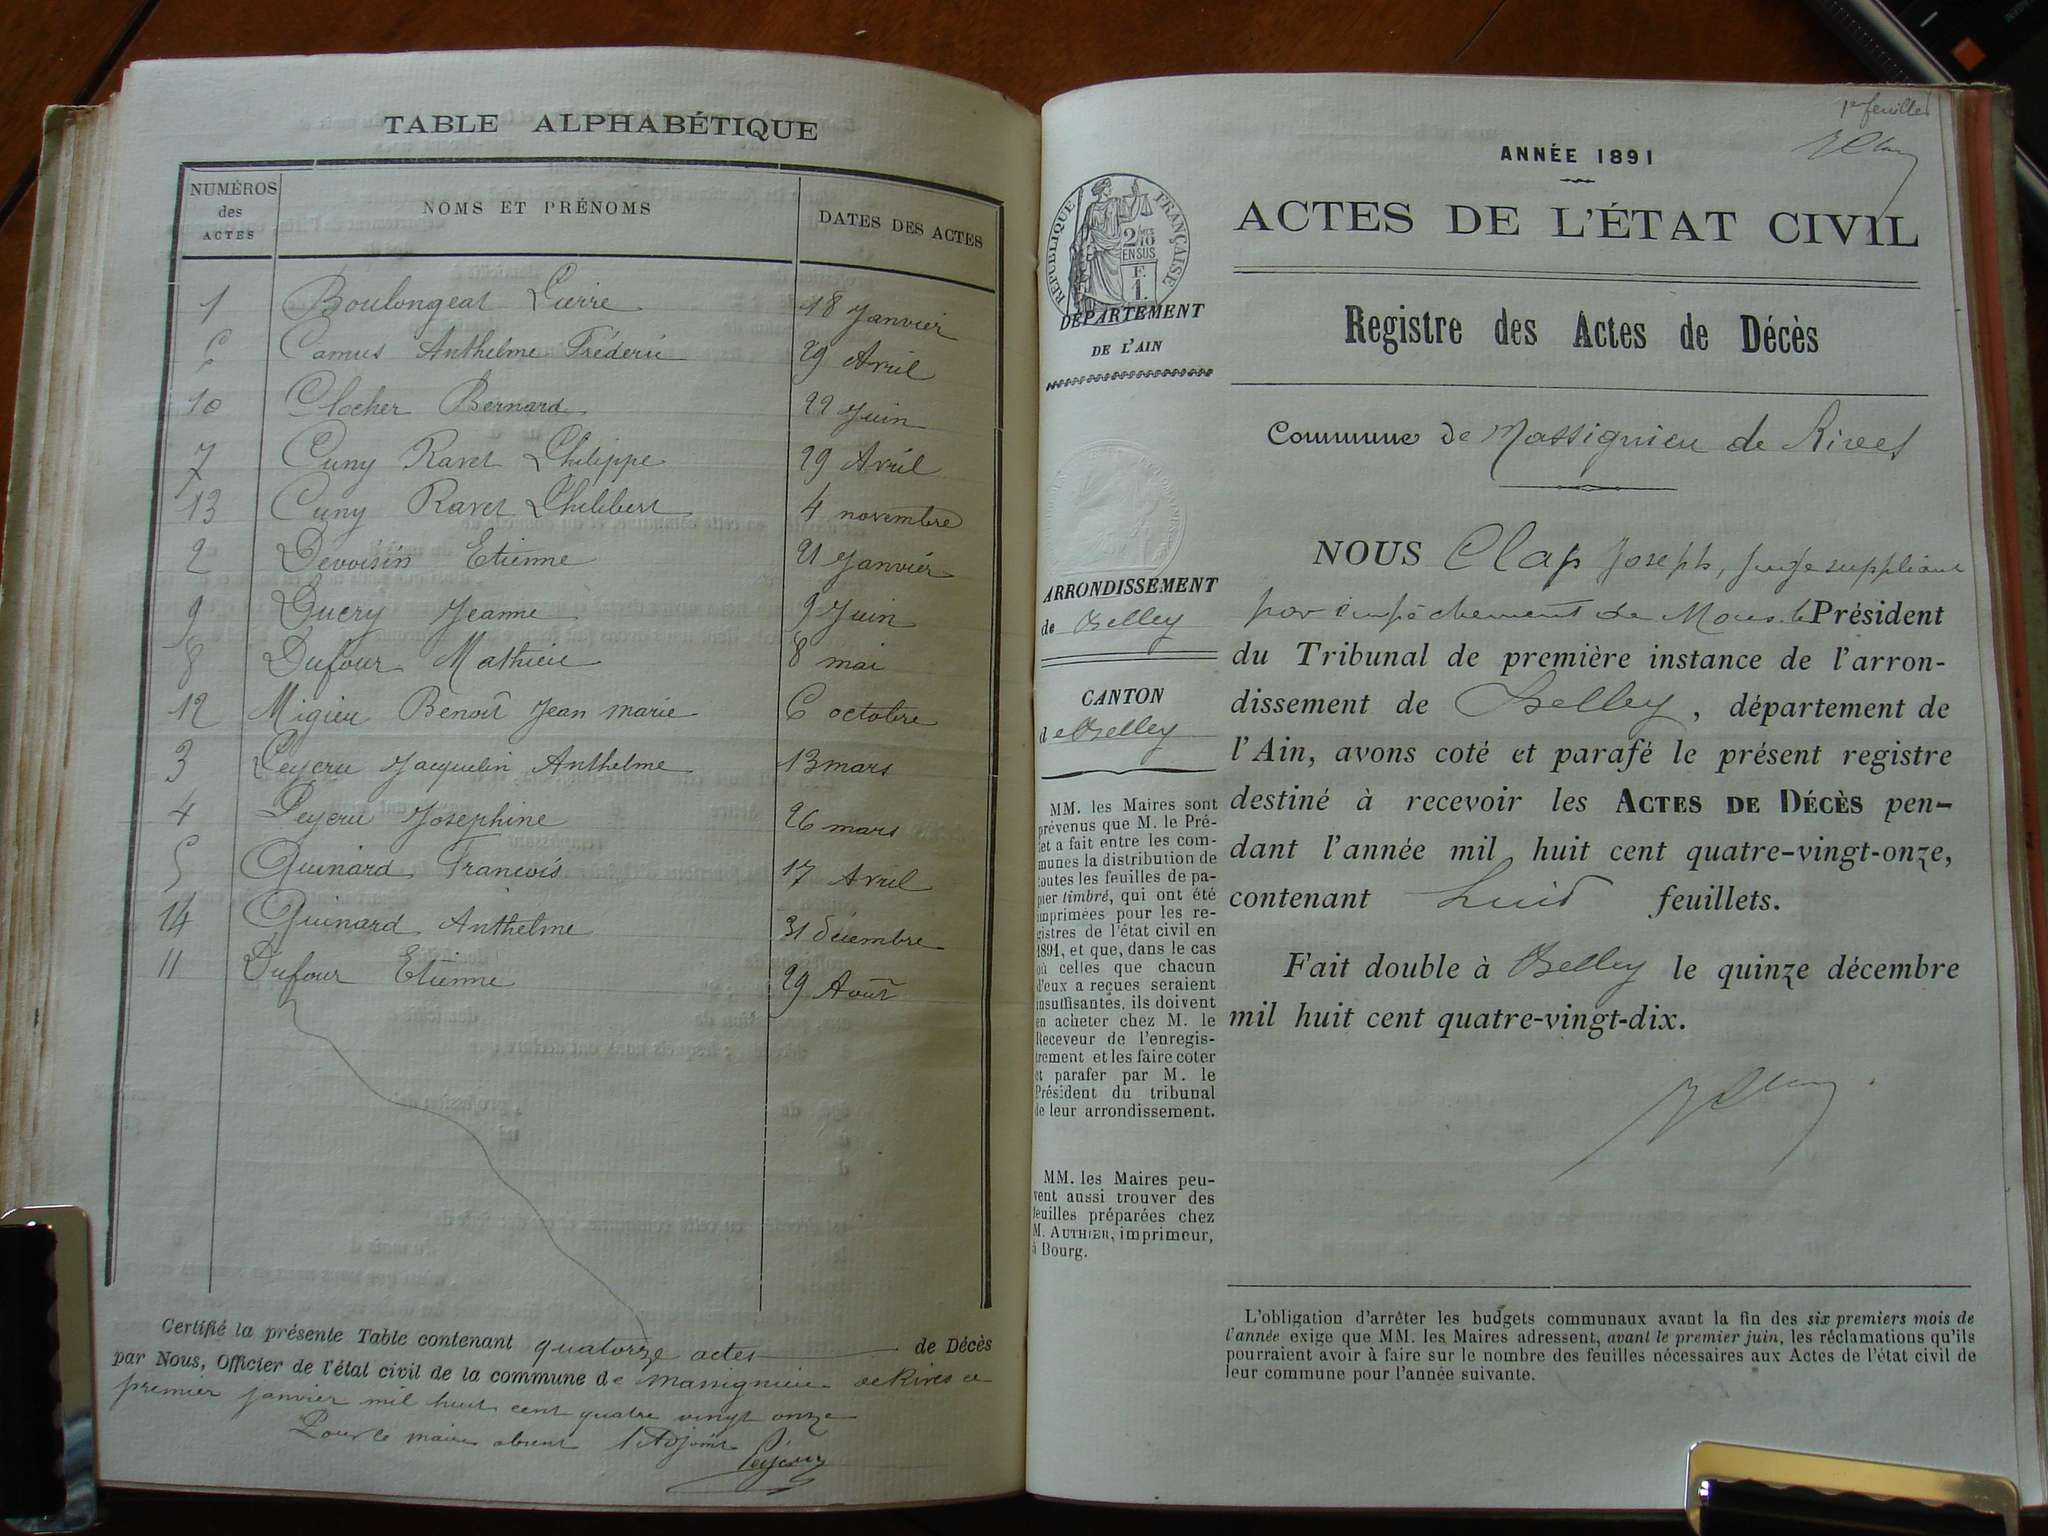 TABLE ALPHABÉTIQUE
NUMÉROS des ACTES NOMS ET PRÉNOMS DATES DES ACTES
1 Boulongeat Pierre 18 Janvier
6 Camus Anthelme Fréderic 29 Avril
10 Clocher Bernard 22 Juin
7 Cuny Ravet Philippe 29 Avril
13 Cuny Ravet Philibert 4 novembre
2 Devoisin Etienne 21 Janvier
9 Ducry Jeanne 9 Juin
8 Dufour Mathieu 8 mai
12 Migieu Benoit Jean marie 6 octobre
3 Peyeru Jacquelin Anthelme 13 mars
4 Peyeru Josephine 26 mars
5 Quinard Francois 17 Avril
14 Quinard Anthelme 31 décembre
11 Dufour Etienne 29 Août
Certifié la présente Table contenant quatorze actes de Décès
par Nous, Officier de l'état civil de la commune de massignieu de Rives ce
premier janvier mil huit cent quatre vingt onze
Pour le maire absent l'Adjoint
1er feuillet
ANNÉE 1891
ACTES DE L'ÉTAT CIVIL
RÉPUBLIQUE FRANÇAISE
2/10 EN SUS
F. 1.
DÉPARTEMENT
DE L'AIN
Registre des Actes de Décès
Commune de Massignieu de Rives
ARRONDISSEMENT
de Belley
CANTON
de Belley
MM. les Maires sont
prévenus que M. le Pré-
fet a fait entre les com-
munes la distribution de
toutes les feuilles de pa-
pier timbré, qui ont été
imprimées pour les re-
gistres de l'état civil en
1891, et que, dans le cas
où celles que chacun
d'eux a reçues seraient
insuffisantes, ils doivent
en acheter chez M. le
Receveur de l'enregis-
trement et les faire coter
et parafer par M. le
Président du tribunal
de leur arrondissement.
MM. les Maires peu-
vent aussi trouver des
feuilles préparées chez
M. AUTHIER, imprimeur,
à Bourg.
NOUS Clap Joseph, juge suppléant
par empêchement de Mons. le Président
du Tribunal de première instance de l'arron-
dissement de Belley, département de
l'Ain, avons coté et parafé le présent registre
destiné à recevoir les ACTES DE DÉCÈS pen-
dant l'année mil huit cent quatre-vingt-onze,
contenant huit feuillets.
Fait double à Belley le quinze décembre
mil huit cent quatre-vingt-dix.
L'obligation d'arrêter les budgets communaux avant la fin des six premiers mois de
l'année exige que MM. les Maires adressent, avant le premier juin, les réclamations qu'ils
pourraient avoir à faire sur le nombre des feuilles nécessaires aux Actes de l'état civil de
leur commune pour l'année suivante.